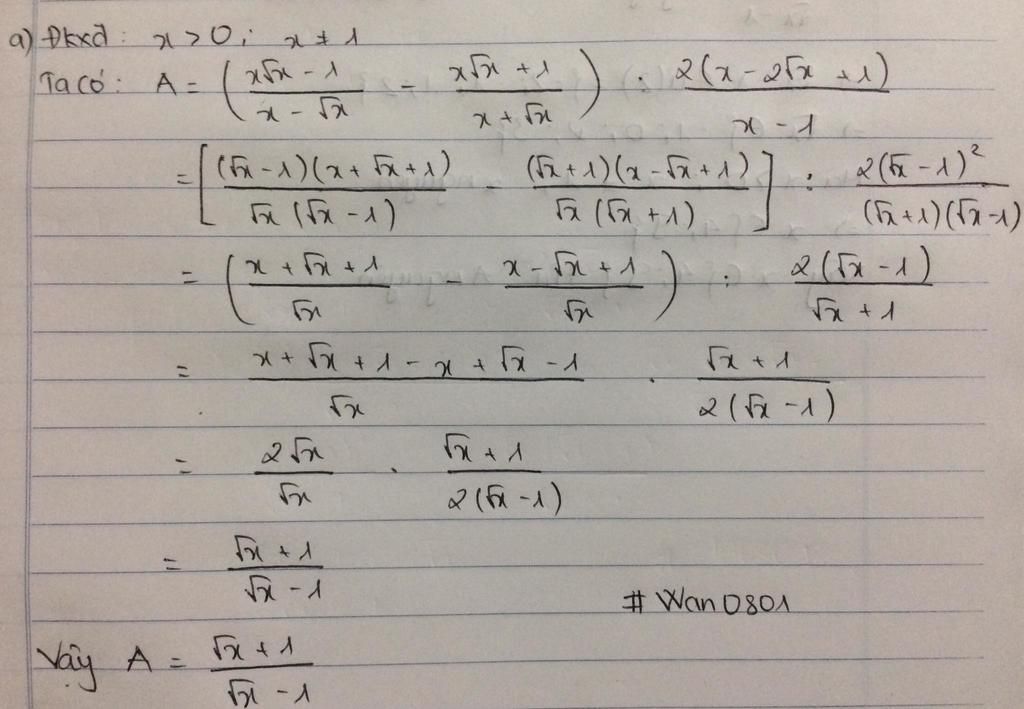 a) Đkxđ: x > 0; x ≠ 1
Ta có: A = ( (x√x - 1)/(x - √x) - (x√x + 1)/(x + √x) ) : 2(x - 2√x + 1)/(x - 1)
= [ (√x - 1)(x + √x + 1)/(√x (√x - 1)) - (√x + 1)(x - √x + 1)/(√x (√x + 1)) ] : 2(√x - 1)²/((√x + 1)(√x - 1))
= ( (x + √x + 1)/√x - (x - √x + 1)/√x ) : 2(√x - 1)/(√x + 1)
= (x + √x + 1 - x + √x - 1)/√x . (√x + 1)/(2(√x - 1))
= 2√x/√x . (√x + 1)/(2(√x - 1))
= (√x + 1)/(√x - 1)
# Wan0801
Vậy A = (√x + 1)/(√x - 1)